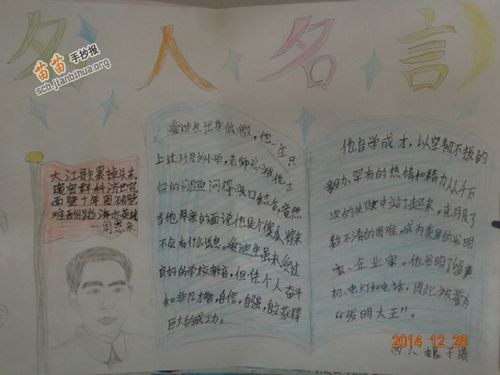 名人名言
苗苗手抄报
scb.jianbihua.org
大江歌罢掉头东
邃密群科济世穷
面壁十年图破壁
难酬蹈海亦英雄
—周恩来
爱迪生出身低微,他一生只
上过三个月的小学,老师
怪的问题问得张口结舌,竟然
当他母亲的面说他是个傻瓜,将来
不会有什么出息。爱迪生虽未受过
良好的学校教育,但凭个人奋斗
和非凡才智,自信,自强,
巨大的成功。
他自学成才,以坚韧不拔的
毅力,罕有的热情和精力从千万
次的失败中站了起来,克服了
数不清的困难,成为美国的发明
家、企业家。他发明了留声
机、电灯和电话,因此被誉为
“发明大王”。
2014 12 28